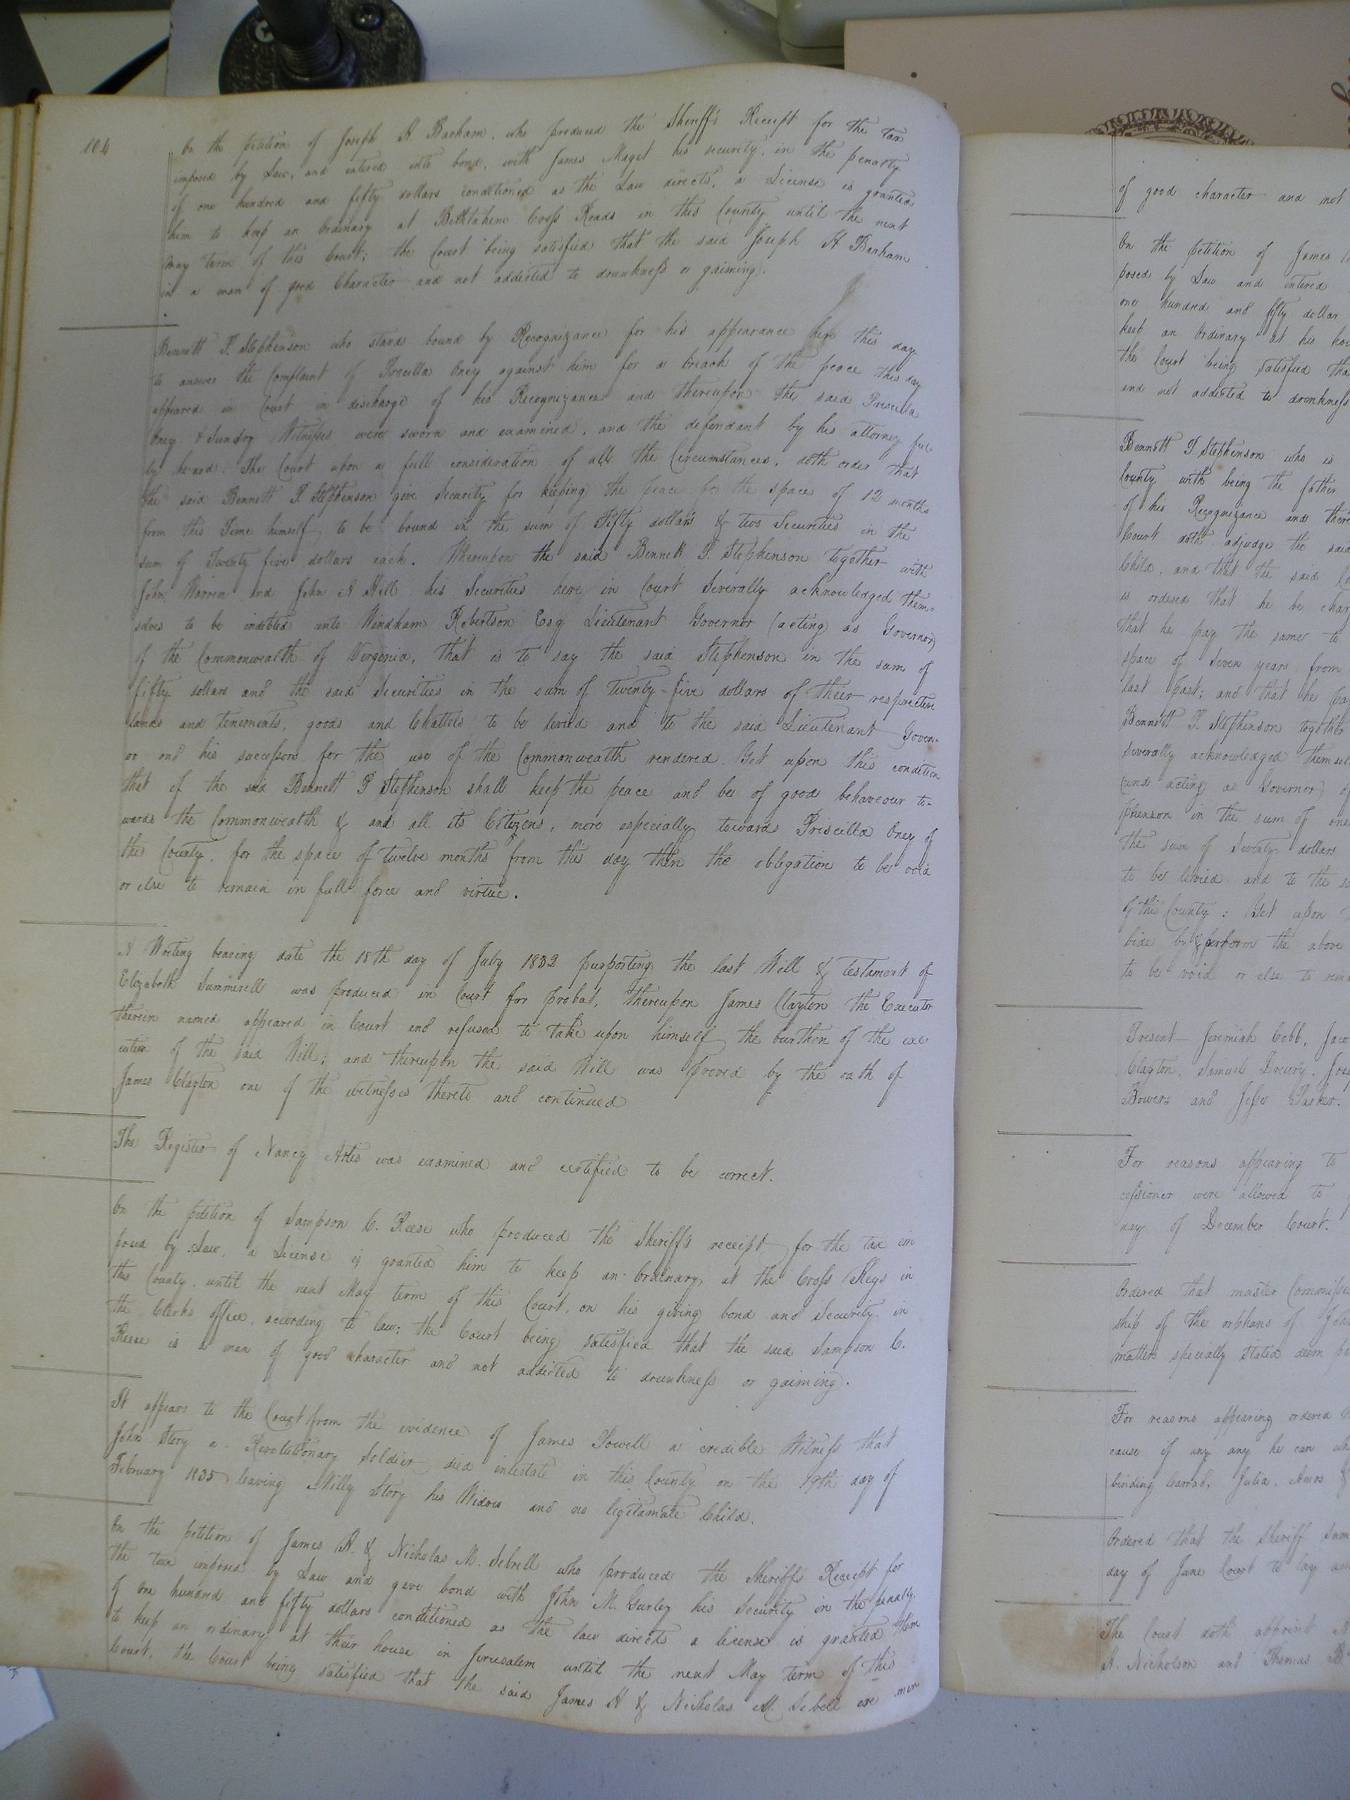 104
On the petition of Joseph H Barham, who produced the Sheriff's Receipt for the tax
imposed by Law, and entered into bond, with James Maget his security, in the penalty
of one hundred and fifty dollars conditioned as the Law directs, a License is granted
him to keep an Ordinary at Bethlehem Cross Roads in this County until the next
may term of this Court; the Court being satisfied that the said Joseph H Barham
is a man of good Character and not addicted to drunkness or gaiming.
Bennett T. Stephenson who stands bound by Recognizance for his appearance here this day
to answer the Complaint of Priscilla Oney against him for a breach of the peace this day
appeared in Court in discharge of his Recognizance and thereupon the said Priscilla
Oney & Sundry Witnesses were sworn and examined, and the defendant by his attorney ful-
ly heard. The Court upon a full consideration of all the Circumstances, doth order that
the said Bennett T. Stephenson give Security for keeping the peace for the space of 12 months
from this Time himself to be bound in the sum of Fifty dollars & two Securities in the
sum of Twenty five dollars each. Whereupon the said Bennett T. Stephenson together with
John Warren and John A Hill his Securities here in Court Severally acknowledged them-
selves to be indebted unto Windham Robertson Esq Lieutenant Governor (acting as Governor)
of the Commonwealth of Virginia, that is to say the said Stephenson in the sum of
fifty dollars and the said Securities in the sum of twenty-five dollars of their respective
lands and tenements, goods and Chattels to be levied and to the said Lieutenant Govern-
or and his successors for the use of the Commonwealth rendered. Yet upon this condition
that if the said Bennett T Stephenson shall keep the peace and be of good behaveour to-
wards the Commonwealth & and all its Citizens, more especially towards Priscilla Oney of
the County, for the space of twelve months from this day then the obligation to be void
or else to remain in full force and virtue.
A Writing bearing date the 15th day of July 1832 purporting the last Will & testament of
Elizabeth Summerell was produced in Court for probat, thereupon James Clayton the Executor
therein named appeared in Court and refused to take upon himself the burthen of the exe
cution of the said Will; and thereupon the said Will was proved by the oath of
James Clayton one of the witnesses thereto and continued
The Register of Nancy Artis was examined and certified to be correct.
On the petition of Sampson C. Reese who produced the Sheriff's receipt for the tax im
posed by Law, a License is granted him to keep an Ordinary, at the Cross Keys in
this County until the next May term of this Court, on his giving bond and Security in
the Clerks office, according to law; the Court being satisfied that the said Sampson C.
Reese is a man of good character and not addicted to drunkness or gaiming.
It appears to the Court from the evidence of James Powell a credible Witness that
John Story a Revolutionary Soldier died intestate in this County on the 19th day of
February 1835 leaving Milly Story his Widow and no legitamate Child.
On the petition of James H. & Nicholas M. Sebrell who produced the Sheriff's Receipt for
the tax imposed by Law and gave bond with John M. Gurley his Security in the penalty
of one hundred and fifty dollars conditioned as the law directs a license is granted them
to keep an ordinary at their house in Jerusalem until the next May term of this
Court, the Court being satisfied that the said James H & Nicholas M. Sebrell are men
of good character and not
On the petition of James
posed by Law and entered
one hundred and fifty dollar
keep an Ordinary at his
the Court being satisfied tha
and not addicted to drunkness
Bennett T Stephenson who is
County with being the father
of his Recognizance and there
Court doth adjudge the said
Child, and that the said
is ordered that he be char
that he pay the same to
space of Seven years from
last past; and that he pa
Bennett T. Stephenson togethe
severally acknowledged themsel
acting as Governor) of
phenson in the sum of one
the sum of Seventy dollars
to be levied and to the sa
of this County: Yet upon
bide by & perform the above
to be void or else to rem
Present Jeremiah Cobb, Jaco
Clayton, Samuel Drewry, Jos
Bowers and Jesse Parker.
For reasons appearing to
cessioner were allowed to
day of December Court.
Ordered that master Commissio
ship of the orphans of
matters specially stated deem pe
For reasons appearing ordered
cause if any any he can wh
binding Sarah, Julia, Amos &
Ordered that the Sheriff Sum
day of June Court to lay
The Court doth appoint
A. Nicholson and Thomas